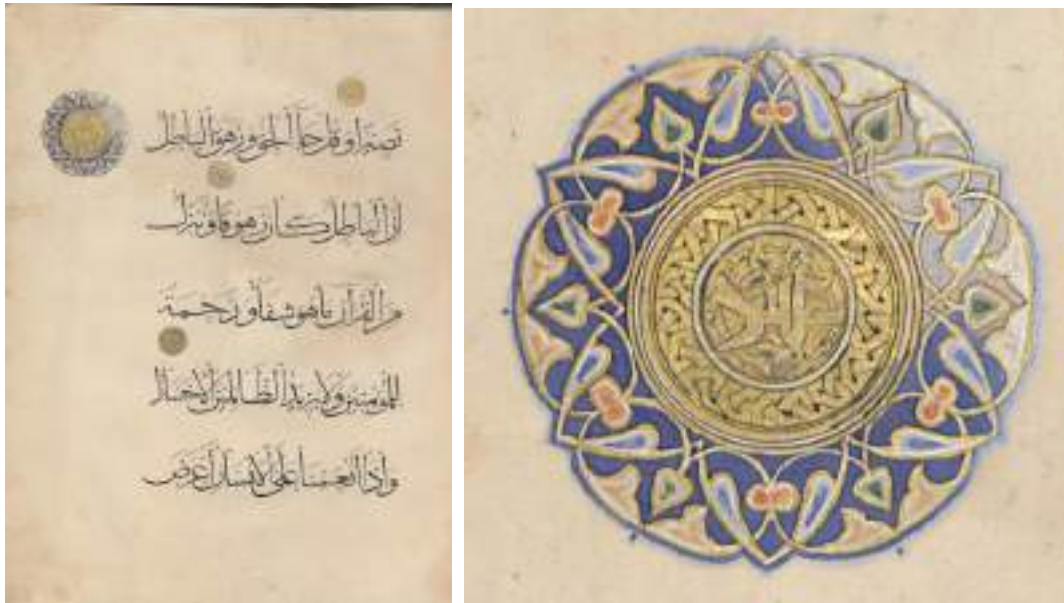 نصيرا وقل جا الحق وزهق الباطل
ان الباطل كان زهوقا وننزل
من القرآن ما هو شفا ورحمة
للمؤمنين ولا يزيد الظالمين الا خسارا
واذا انعمنا على الانسان اعرض